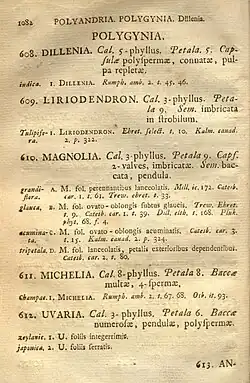 1082 POLYANDRIA. POLYGYNIA. Dillenia.
POLYGYNIA.
608. DILLENIA. Cal. 5-phyllus. Petala. 5. Cap-
sulæ polyspermæ, connatæ, pul-
pa repletæ.
indica. 1. DILLENIA. Rumph. amb. 2. t. 45. 46.
609. LIRIODENDRON. Cal. 3-phyllus. Peta-
la 9. Sem. imbricata
in strobilum.
Tulipife- 1. LIRIODENDRON. Ehret. select. t. 10. Kalm. canad.
ra. 2. p. 322.
610. MAGNOLIA. Cal. 3-phyllus. Petala 9. Caps.
2-valves, imbricatæ. Sem. bac-
cata, pendula.
grandi- 1. M. fol. perennantibus lanceolatis. Mill. ic. 172. Catesb.
flora. car. 1. t. 61. Trew. ehret. t. 33.
glauca. 2. M. fol. ovato-oblongis subtus glaucis. Trew. Ehret.
t. 9. Catesb. car. 1. t. 39. Dill. elth. t. 168. Pluk.
phyt. 68. f. 4.
acumina- C. M. fol. ovato-oblongis acuminatis. Catesb. car. 3.
ta. t. 15. Kalm. canad. 2. p. 324.
tripetala. D. M. fol. lanceolatis, petalis exterioribus dependentibus.
Catesb. car. 2. t. 80.
611. MICHELIA. Cal. 8-phyllus. Petala 8. Baccæ
multæ, 4-spermæ.
Champac. 1. MICHELIA. Rumph. amb. 2. t. 67. 68. Orb. it. 93.
612. UVARIA. Cal. 3-phyllus. Petala 6. Baccæ
numerosæ, pendulæ, polyspermæ.
zeylanic. 1. U. foliis integerrimis.
japonica. 2. U. foliis serratis.
613. AN-